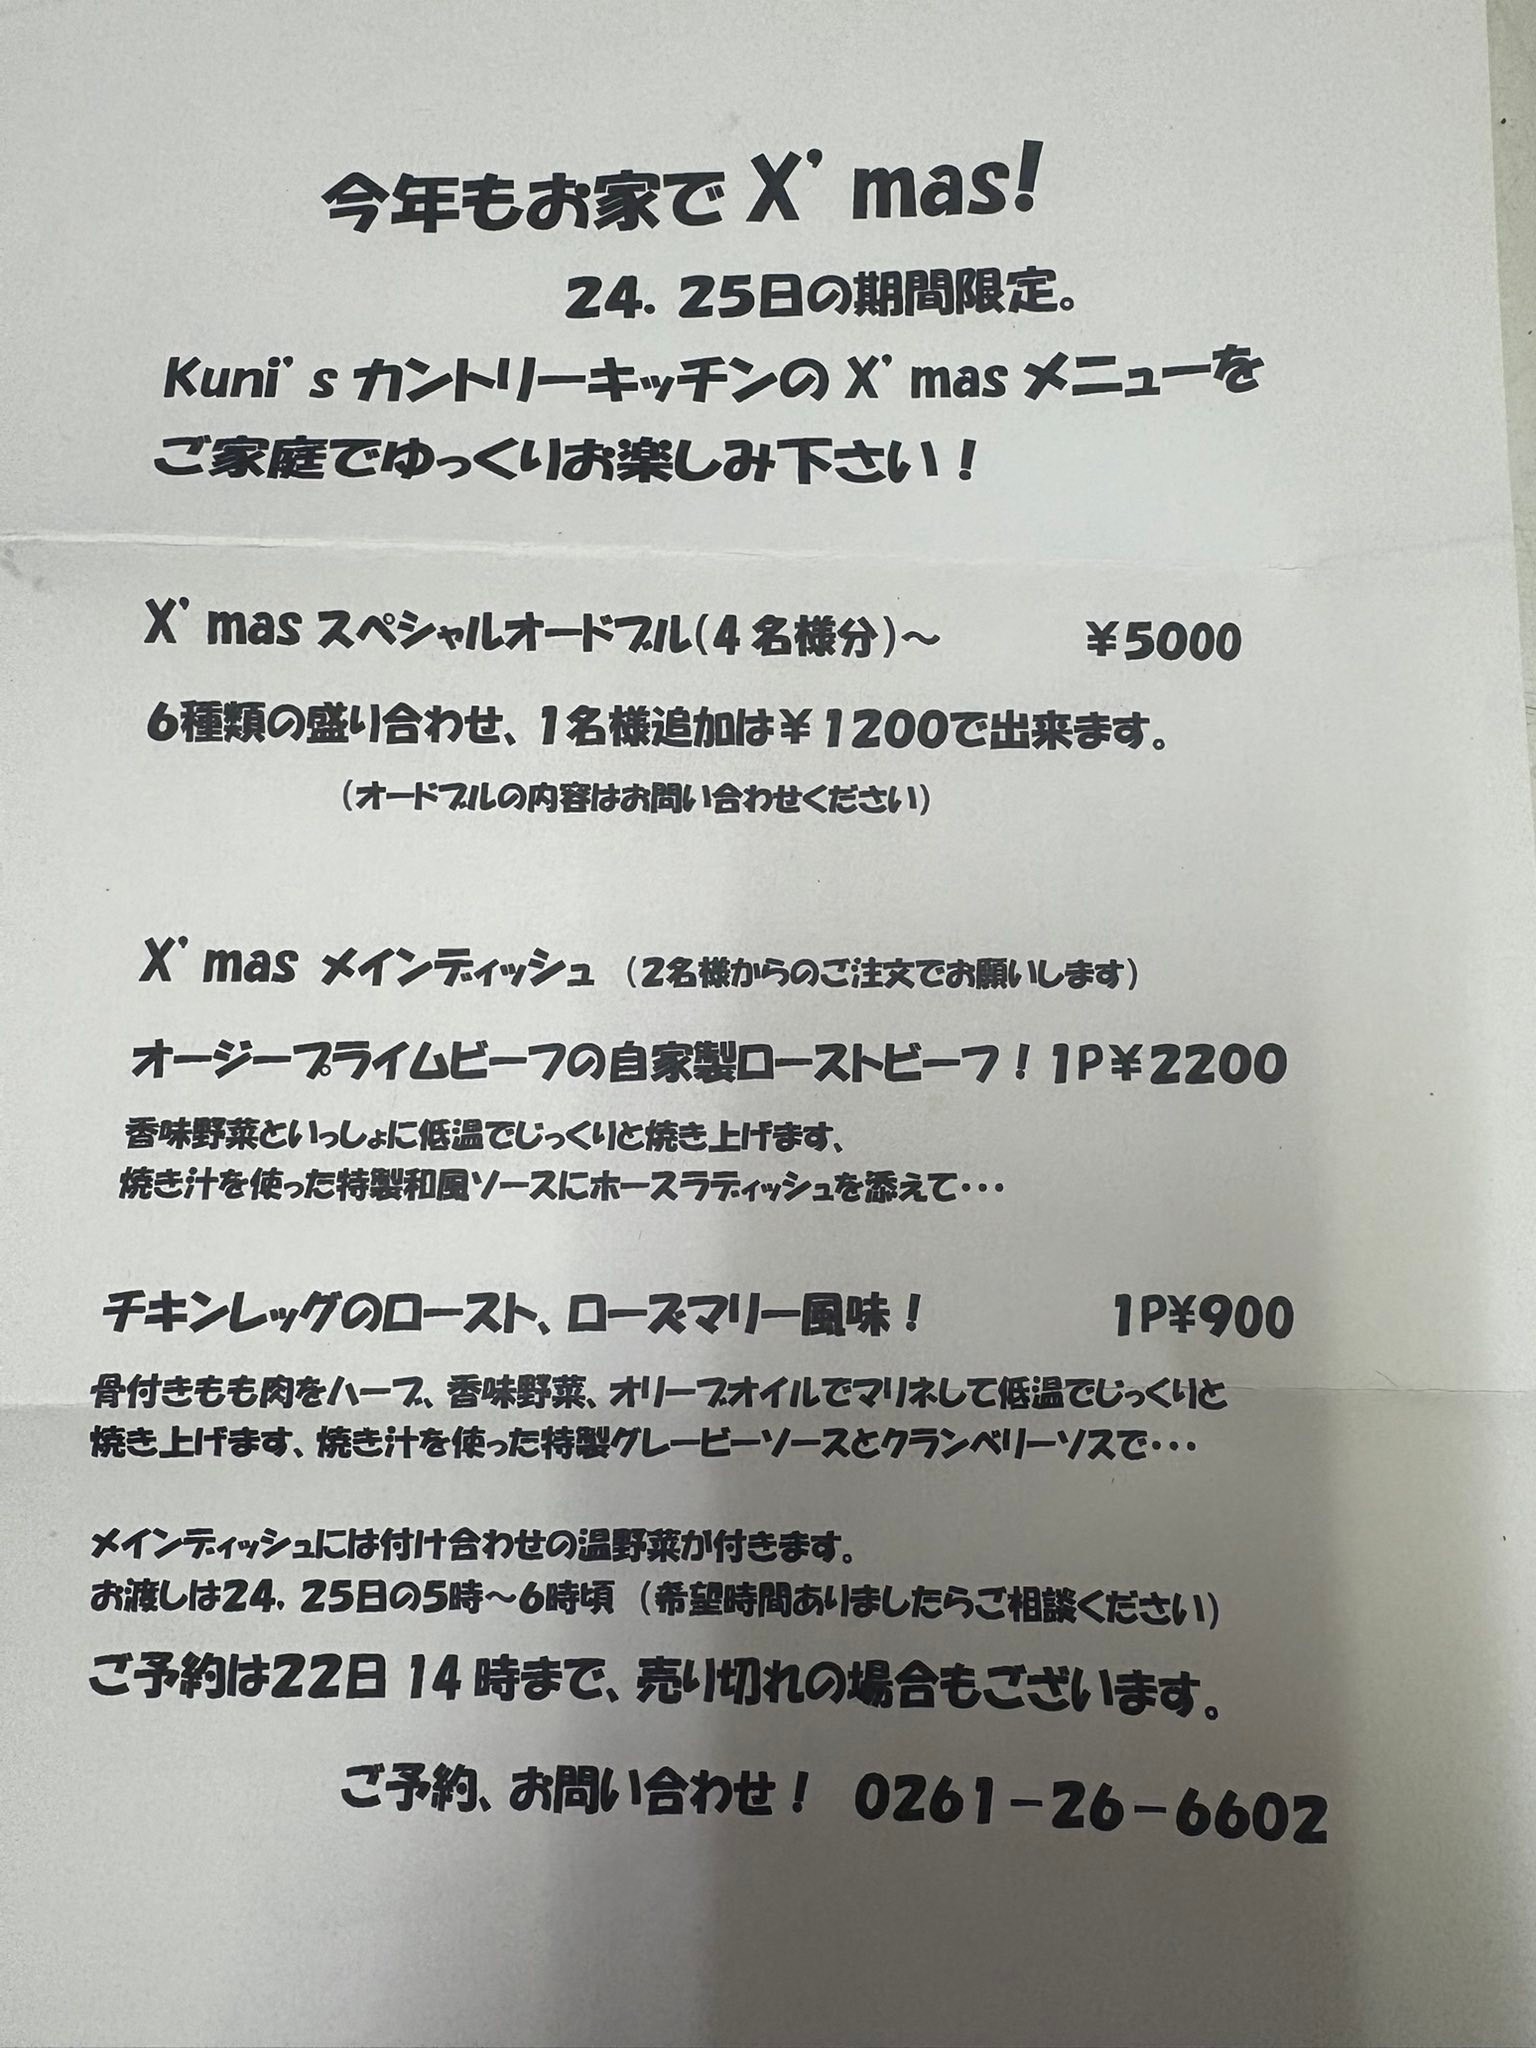 今年もお家でX’mas!
24．25日の期間限定。
Kuni’sカントリーキッチンのX’masメニューを
ご家庭でゆっくりお楽しみ下さい！
X’masスペシャルオードブル(4名様分)～ ￥5000
6種類の盛り合わせ、1名様追加は￥1200で出来ます。
（オードブルの内容はお問い合わせください）
X’mas メインディッシュ （2名様からのご注文でお願いします）
オージープライムビーフの自家製ローストビーフ！1P￥2200
香味野菜といっしょに低温でじっくりと焼き上げます、
焼き汁を使った特製和風ソースにホースラディッシュを添えて・・・
チキンレッグのロースト、ローズマリー風味！ 1P¥900
骨付きもも肉をハーブ、香味野菜、オリーブオイルでマリネして低温でじっくりと
焼き上げます、焼き汁を使った特製グレービーソースとクランベリーソスで・・・
メインディッシュには付け合わせの温野菜が付きます。
お渡しは24，25日の5時～6時頃（希望時間ありましたらご相談ください）
ご予約は22日14時まで、売り切れの場合もございます。
ご予約、お問い合わせ！ 0261－26－6602